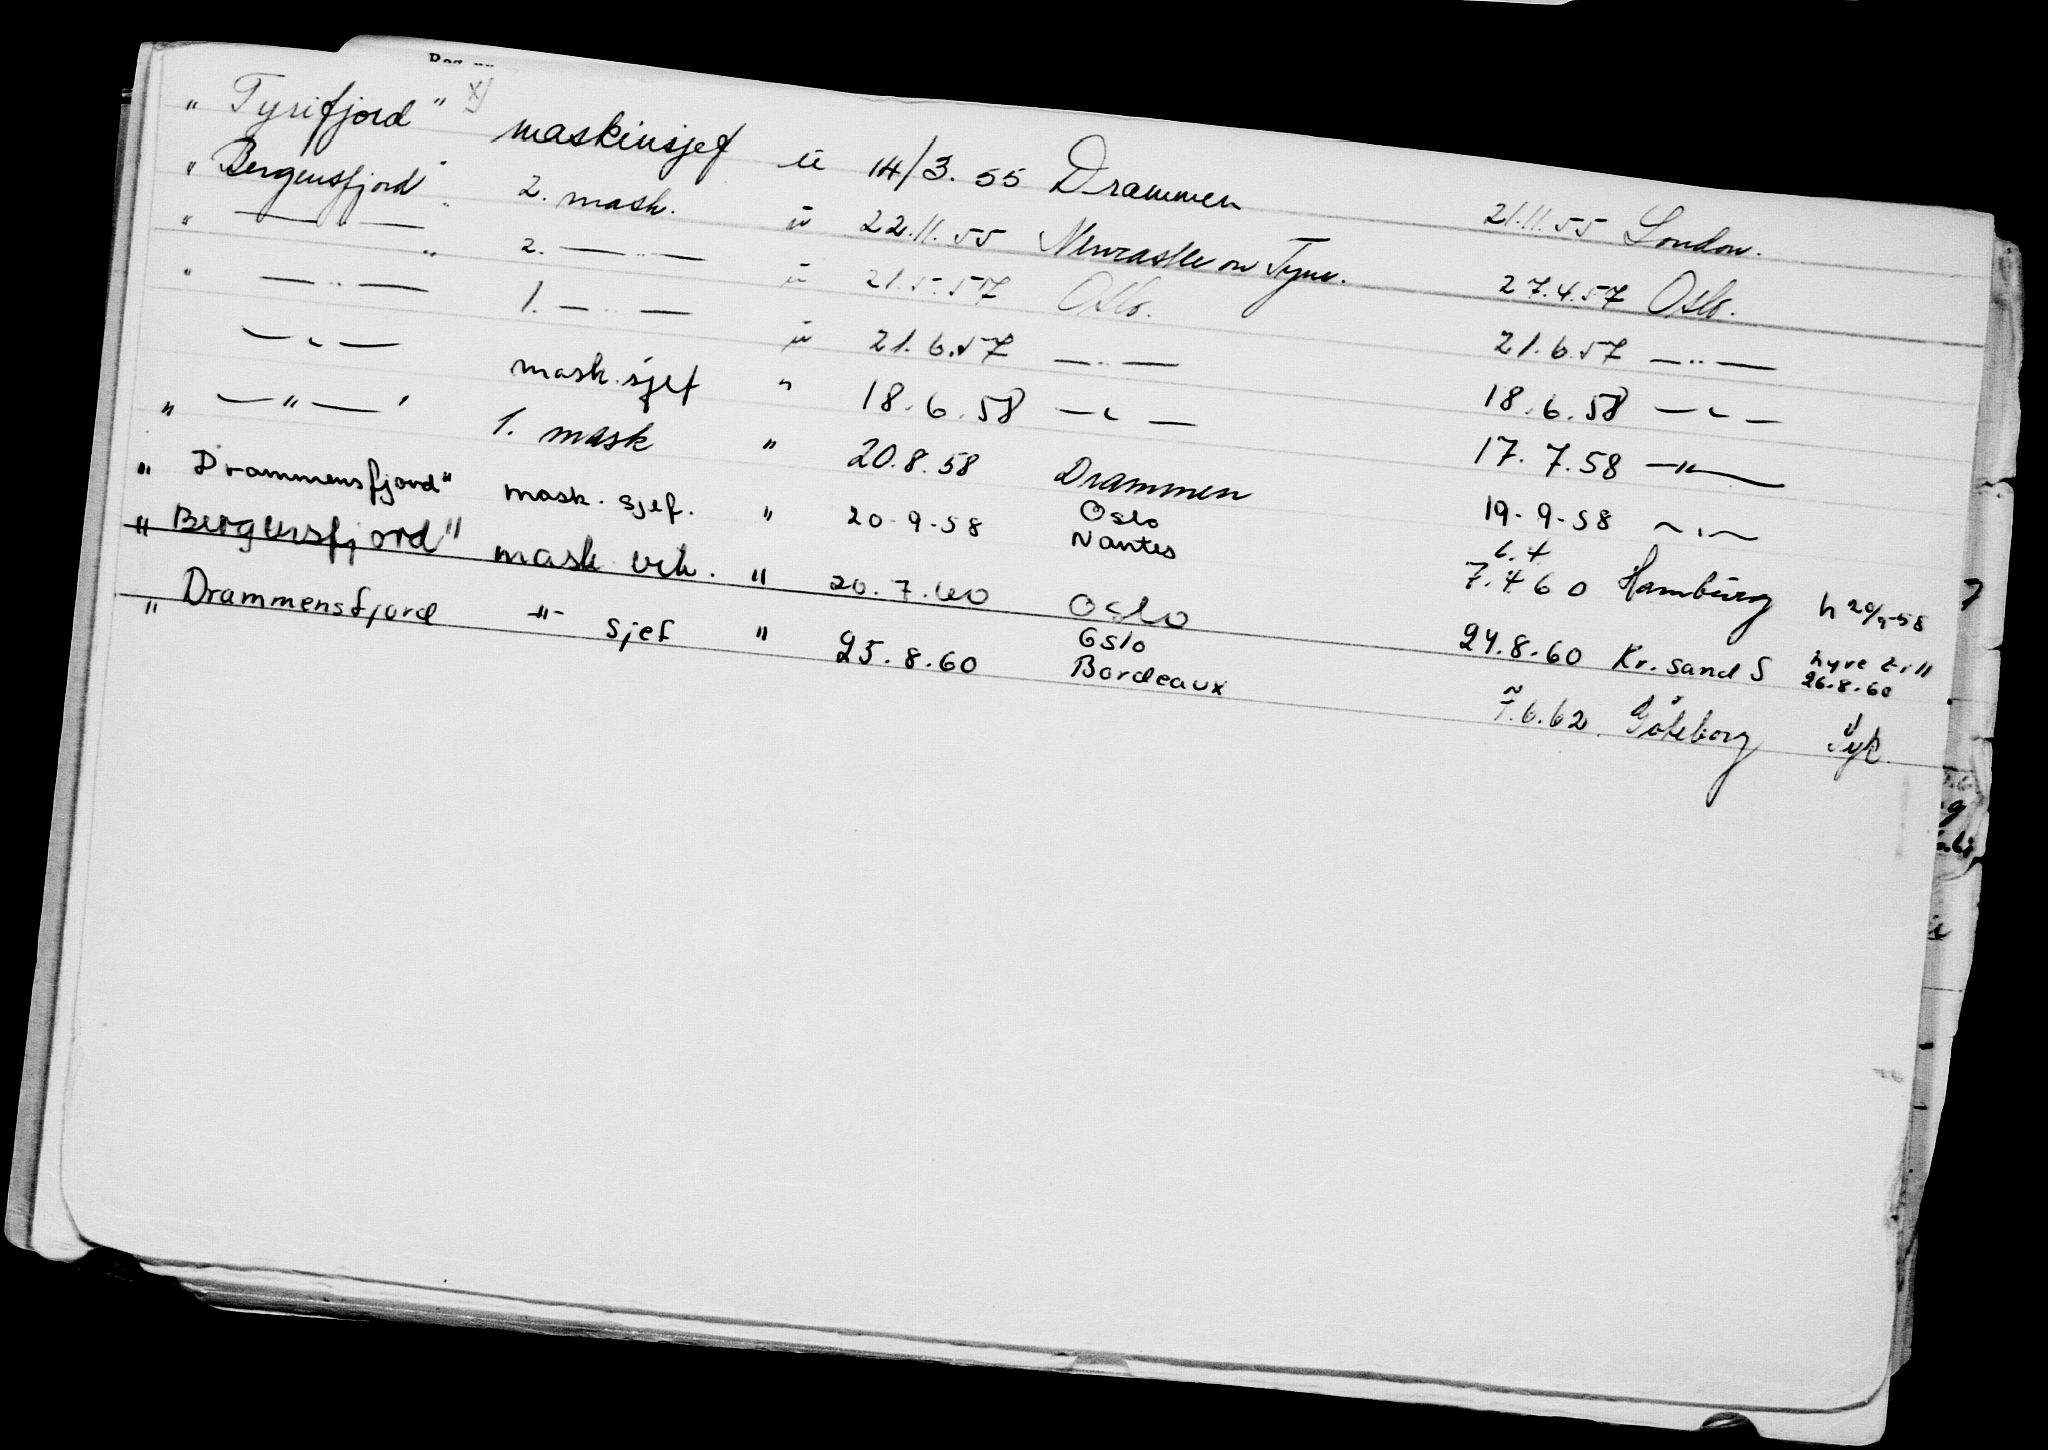 " Tyrifjord " x) maskinsjef u 14/3. 55 Drammen 21.11.55 London.
" Bergensfjord " 2. mask. u 22.11.55 Newcastle on Tyne. 27.4.57 Oslo.
" — " — " 2. — " — u 21.5.57 Oslo. 21.6.57 — " —
" — " — 1. — " — u 21.6.57 — " — 18.6.58 — " —
— " — mask.sjef " 18.6.58 — " — 17.7.58 — " —
" — " — " 1. mask " 20.8.58 Drammen 19.9.58 — " —
" Drammensfjord " mask. sjef. " 20.9.58 Oslo Nantes 6.4 7.4 60 Hamburg h 20/9-58
" Bergensfjord " mask. vik. " 20.7.60 Oslo 24.8.60 Kr.sand S hyre till 26.8.60
" Drammensfjord - " - sjef " 25.8.60 Oslo Bordeaux 7.6.62. Göteborg syk.